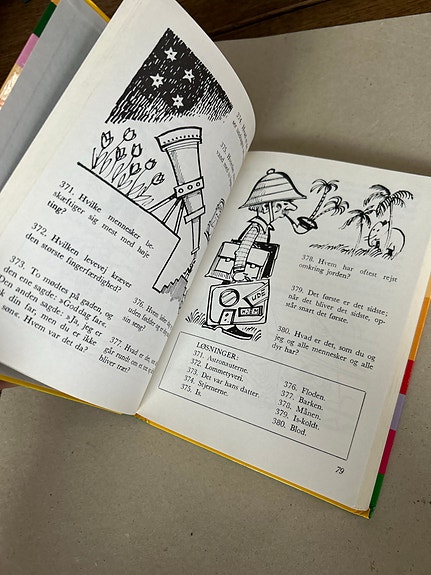 371. Hvilke mennesker be-
skæftiger sig mest med høje
ting?
372. Hvilken levevej kræver
den største fingerfærdighed?
373. To mødes på gaden, og
den ene sagde: »Goddag fare.
Den anden sagde: »Ja, jeg e
k din far, men du er ikke
søn«. Hvem var det da?
374.
375.
376. Hvem
uden fødder og
sin seng?
377. Hvad er det, so
går rundt om et træ,
bliver træ?
UDS
378. Hvem har oftest rejst
omkring jorden?
379. Det første er det sidste;
når det bliver det sidste, op-
står snart det første.
380. Hvad er det, som du og
jeg og alle mennesker og alle
dyr har?
LØSNINGER:
371. Astronauterne.
372. Lommetyveri.
373. Det var hans datter.
374. Stjernerne.
375. Is.
376. Floden.
377. Barken.
378. Månen.
379. Is-koldt.
380. Blod.
79